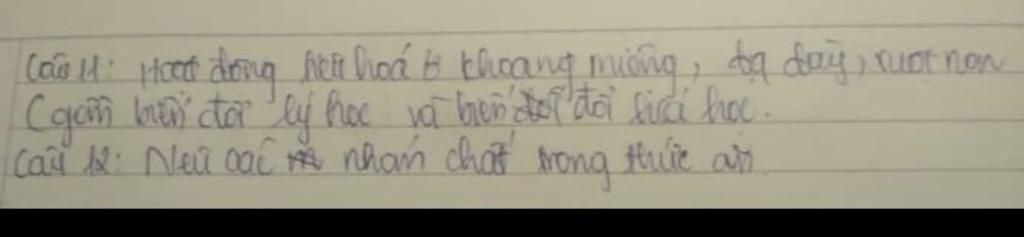 Câu 11: Hoạt động tiêu hoá ở khoang miệng, dạ dày, ruột non
(gồm biến đổi lý học và biến đổi hoá học.
Câu 12: Nêu các nhóm chất trong thức ăn